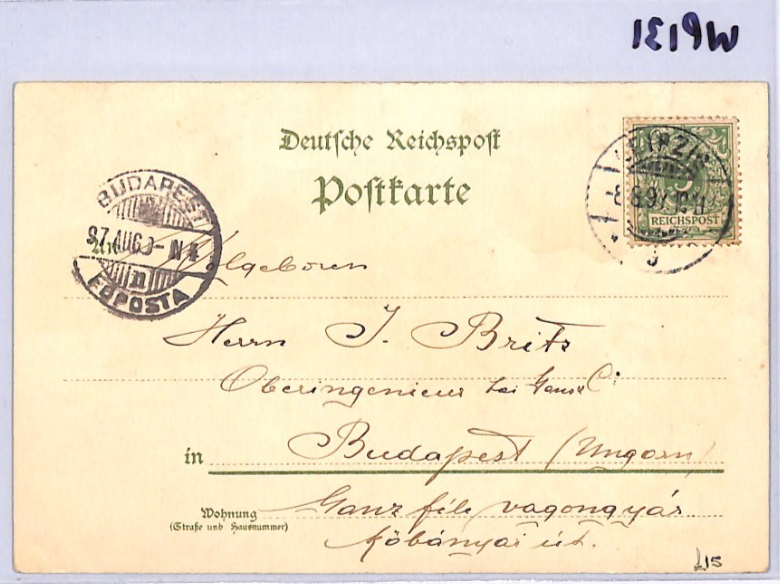 W6131
Deutsche Reichspost
Postkarte
LEIPZIG
8.97
REICHSPOST
BUDAPEST
97 AUG 9 - N 4
FŐPOSTA
Wolgeboren
Herrn J. Britz
Oberingenieur bei Ganz & C:
in Budapest (Ungarn)
Wohnung
(Straße und Hausnummer)
Ganz féle vagongyár
Kőbányai út.
£15